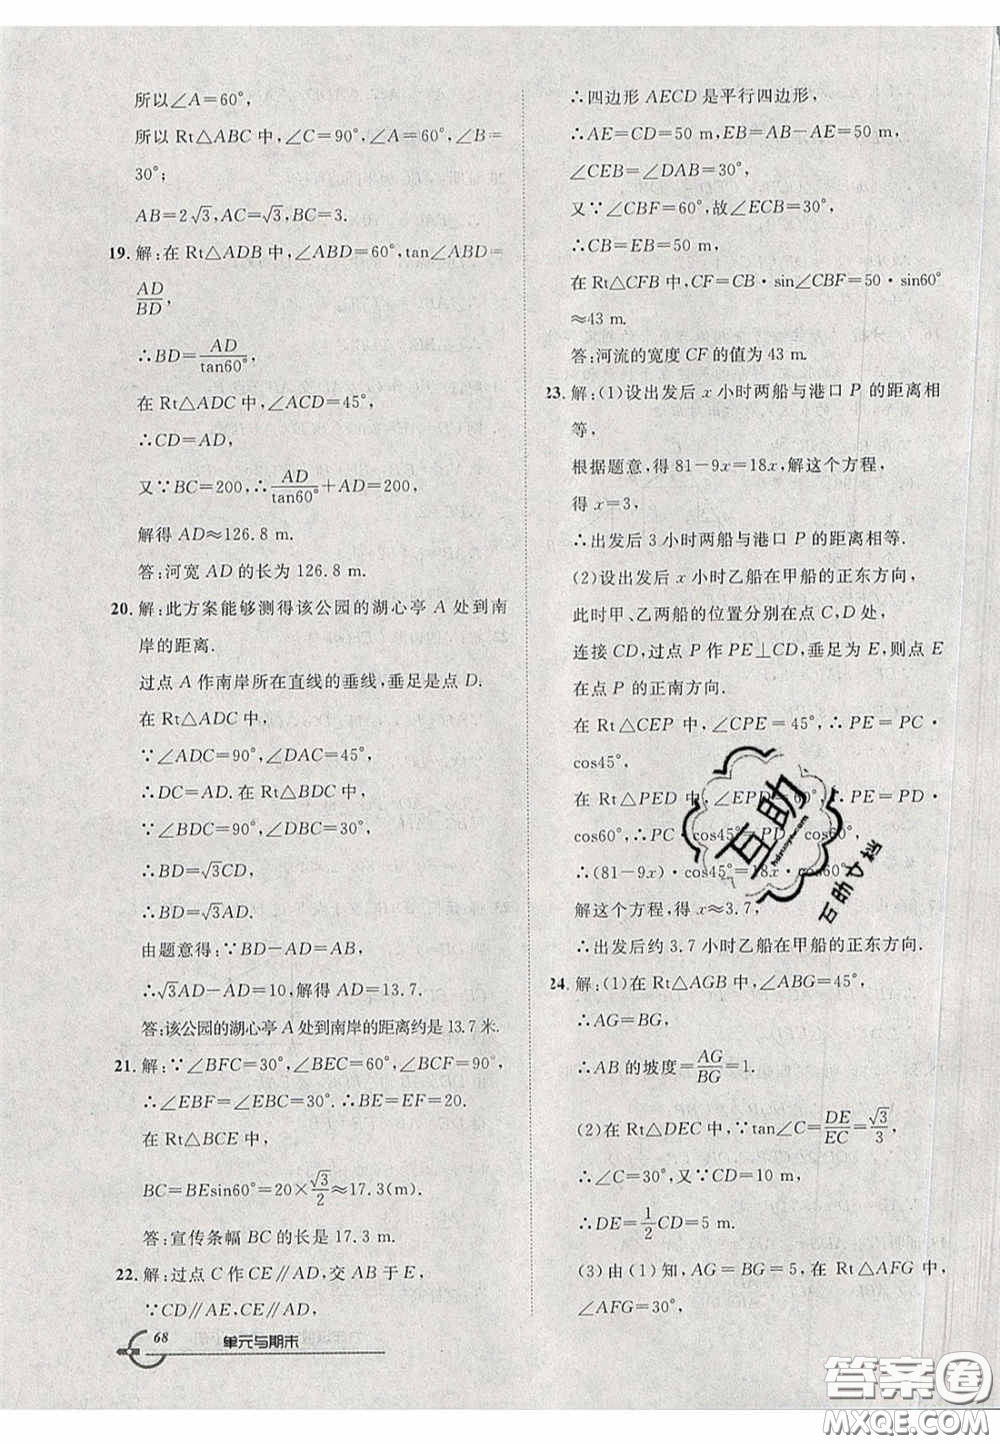 所以∠A=60°,
所以 Rt△ABC 中,∠C=90°,∠A=60°,∠B=
30°;
AB=2√3,AC=√3,BC=3.
19. 解:在 Rt△ADB 中,∠ABD=60°,tan∠ABD=
AD/BD,
∴BD=AD/tan60°,
在 Rt△ACD 中,∠CAD=45°,
∴CD=AD,
又∵BC=200,∴AD/tan60°+AD=200,
解得 AD≈126.8 m.
答:河宽 AD 的长为 126.8 m.
20. 解:此方案能够测得该公园的湖心亭 A 处到南
岸的距离.
过点 A 作南岸所在直线的垂线,垂足是点 D.
在 Rt△ADC 中,
∵∠ADC=90°,∠DAC=45°,
∴DC=AD.在 Rt△BDC 中,
∵∠BDC=90°,∠DBC=30°,
∴BD=√3CD,
∴BD=√3AD.
由题意得:∵BD-AD=AB,
∴√3AD-AD=10,解得 AD=13.7.
答:该公园的湖心亭 A 处到南岸的距离约是 13.7 米.
21. 解:∵∠BFC=30°,∠BEC=60°,∠BCF=90°,
∴∠EBF=∠EBC=30°.∴BE=EF=20.
在 Rt△BCE 中,
BC=BEsin60°=20×√3/2≈17.3(m).
答:宣传条幅 BC 的长是 17.3 m.
22. 解:过点 C 作 CE∥AD,交 AB 于 E,
∵CD∥AE,CE∥AD,
68 单元与期末
∴四边形 AECD 是平行四边形,
∴AE=CD=50 m,EB=AB-AE=50 m,
∠CEB=∠DAB=30°,
又∵∠CBF=60°,故∠ECB=30°,
∴CB=EB=50 m,
在 Rt△CFB 中,CF=CB·sin∠CBF=50·sin60°
≈43 m.
答:河流的宽度 CF 的值为 43 m.
23. 解:(1)设出发后 x 小时两船与港口 P 的距离相
等,
根据题意,得 81-9x=18x,解这个方程,
得 x=3,
∴出发后 3 小时两船与港口 P 的距离相等.
(2)设出发后 x 小时乙船在甲船的正东方向,
此时甲、乙两船的位置分别在点 C,D 处,
连接 CD,过点 P 作 PE⊥CD,垂足为 E,则点 E
在点 P 的正南方向.
在 Rt△CEP 中,∠CPE=45°,∴PE=PC·
cos45°,
在 Rt△PED 中,∠EPD=60°,∴PE=PD·
cos60°,∴PC·cos45°=PD·cos60°,
∴(81-9x)·cos45°=18x·cos60°.
解这个方程,得 x≈3.7,
∴出发后约 3.7 小时乙船在甲船的正东方向.
24. 解:(1)在 Rt△AGB 中,∠ABG=45°,
∴AG=BG,
∴AB 的坡度=AG/BG=1.
(2)在 Rt△DEC 中,∵tan∠C=DE/EC=√3/3,
∴∠C=30°,又∵CD=10 m,
∴DE=1/2CD=5 m.
(3)由(1)知,AG=BG=5,在 Rt△AFG 中,
∠AFG=30°,
互助
互助文档
答案圈
MXQE.COM